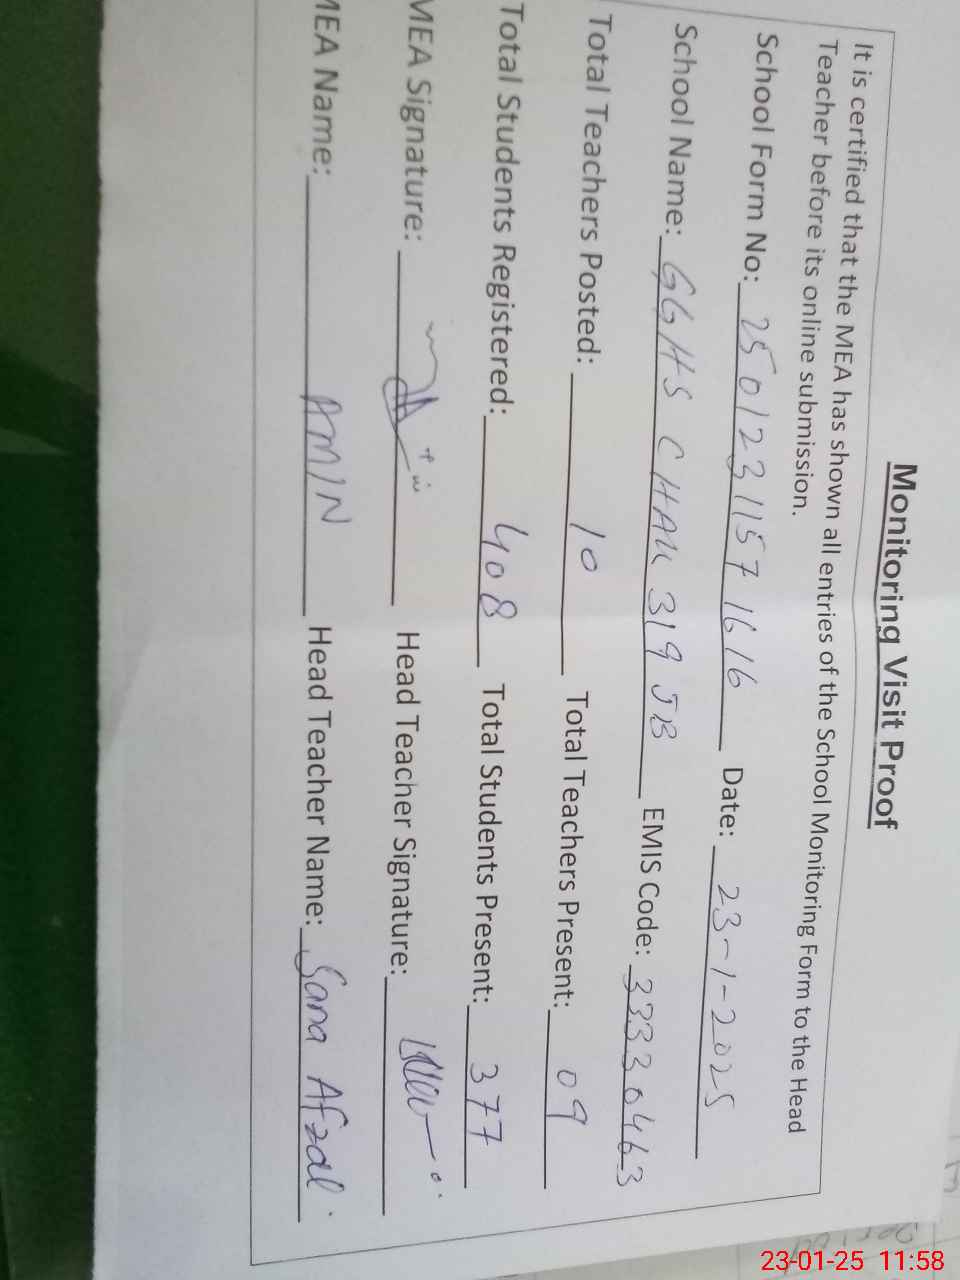 Monitoring Visit Proof
It is certified that the MEA has shown all entries of the School Monitoring Form to the Head
Teacher before its online submission.
School Form No: 25012311571616 Date: 23-1-2025
School Name: GGHS CHAK 319 JB EMIS Code: 33330463
Total Teachers Posted: 10 Total Teachers Present: 09
Total Students Registered: 408 Total Students Present: 377
MEA Signature: Head Teacher Signature:
MEA Name: AMIN Head Teacher Name: Sana Afzal
23-01-25 11:58